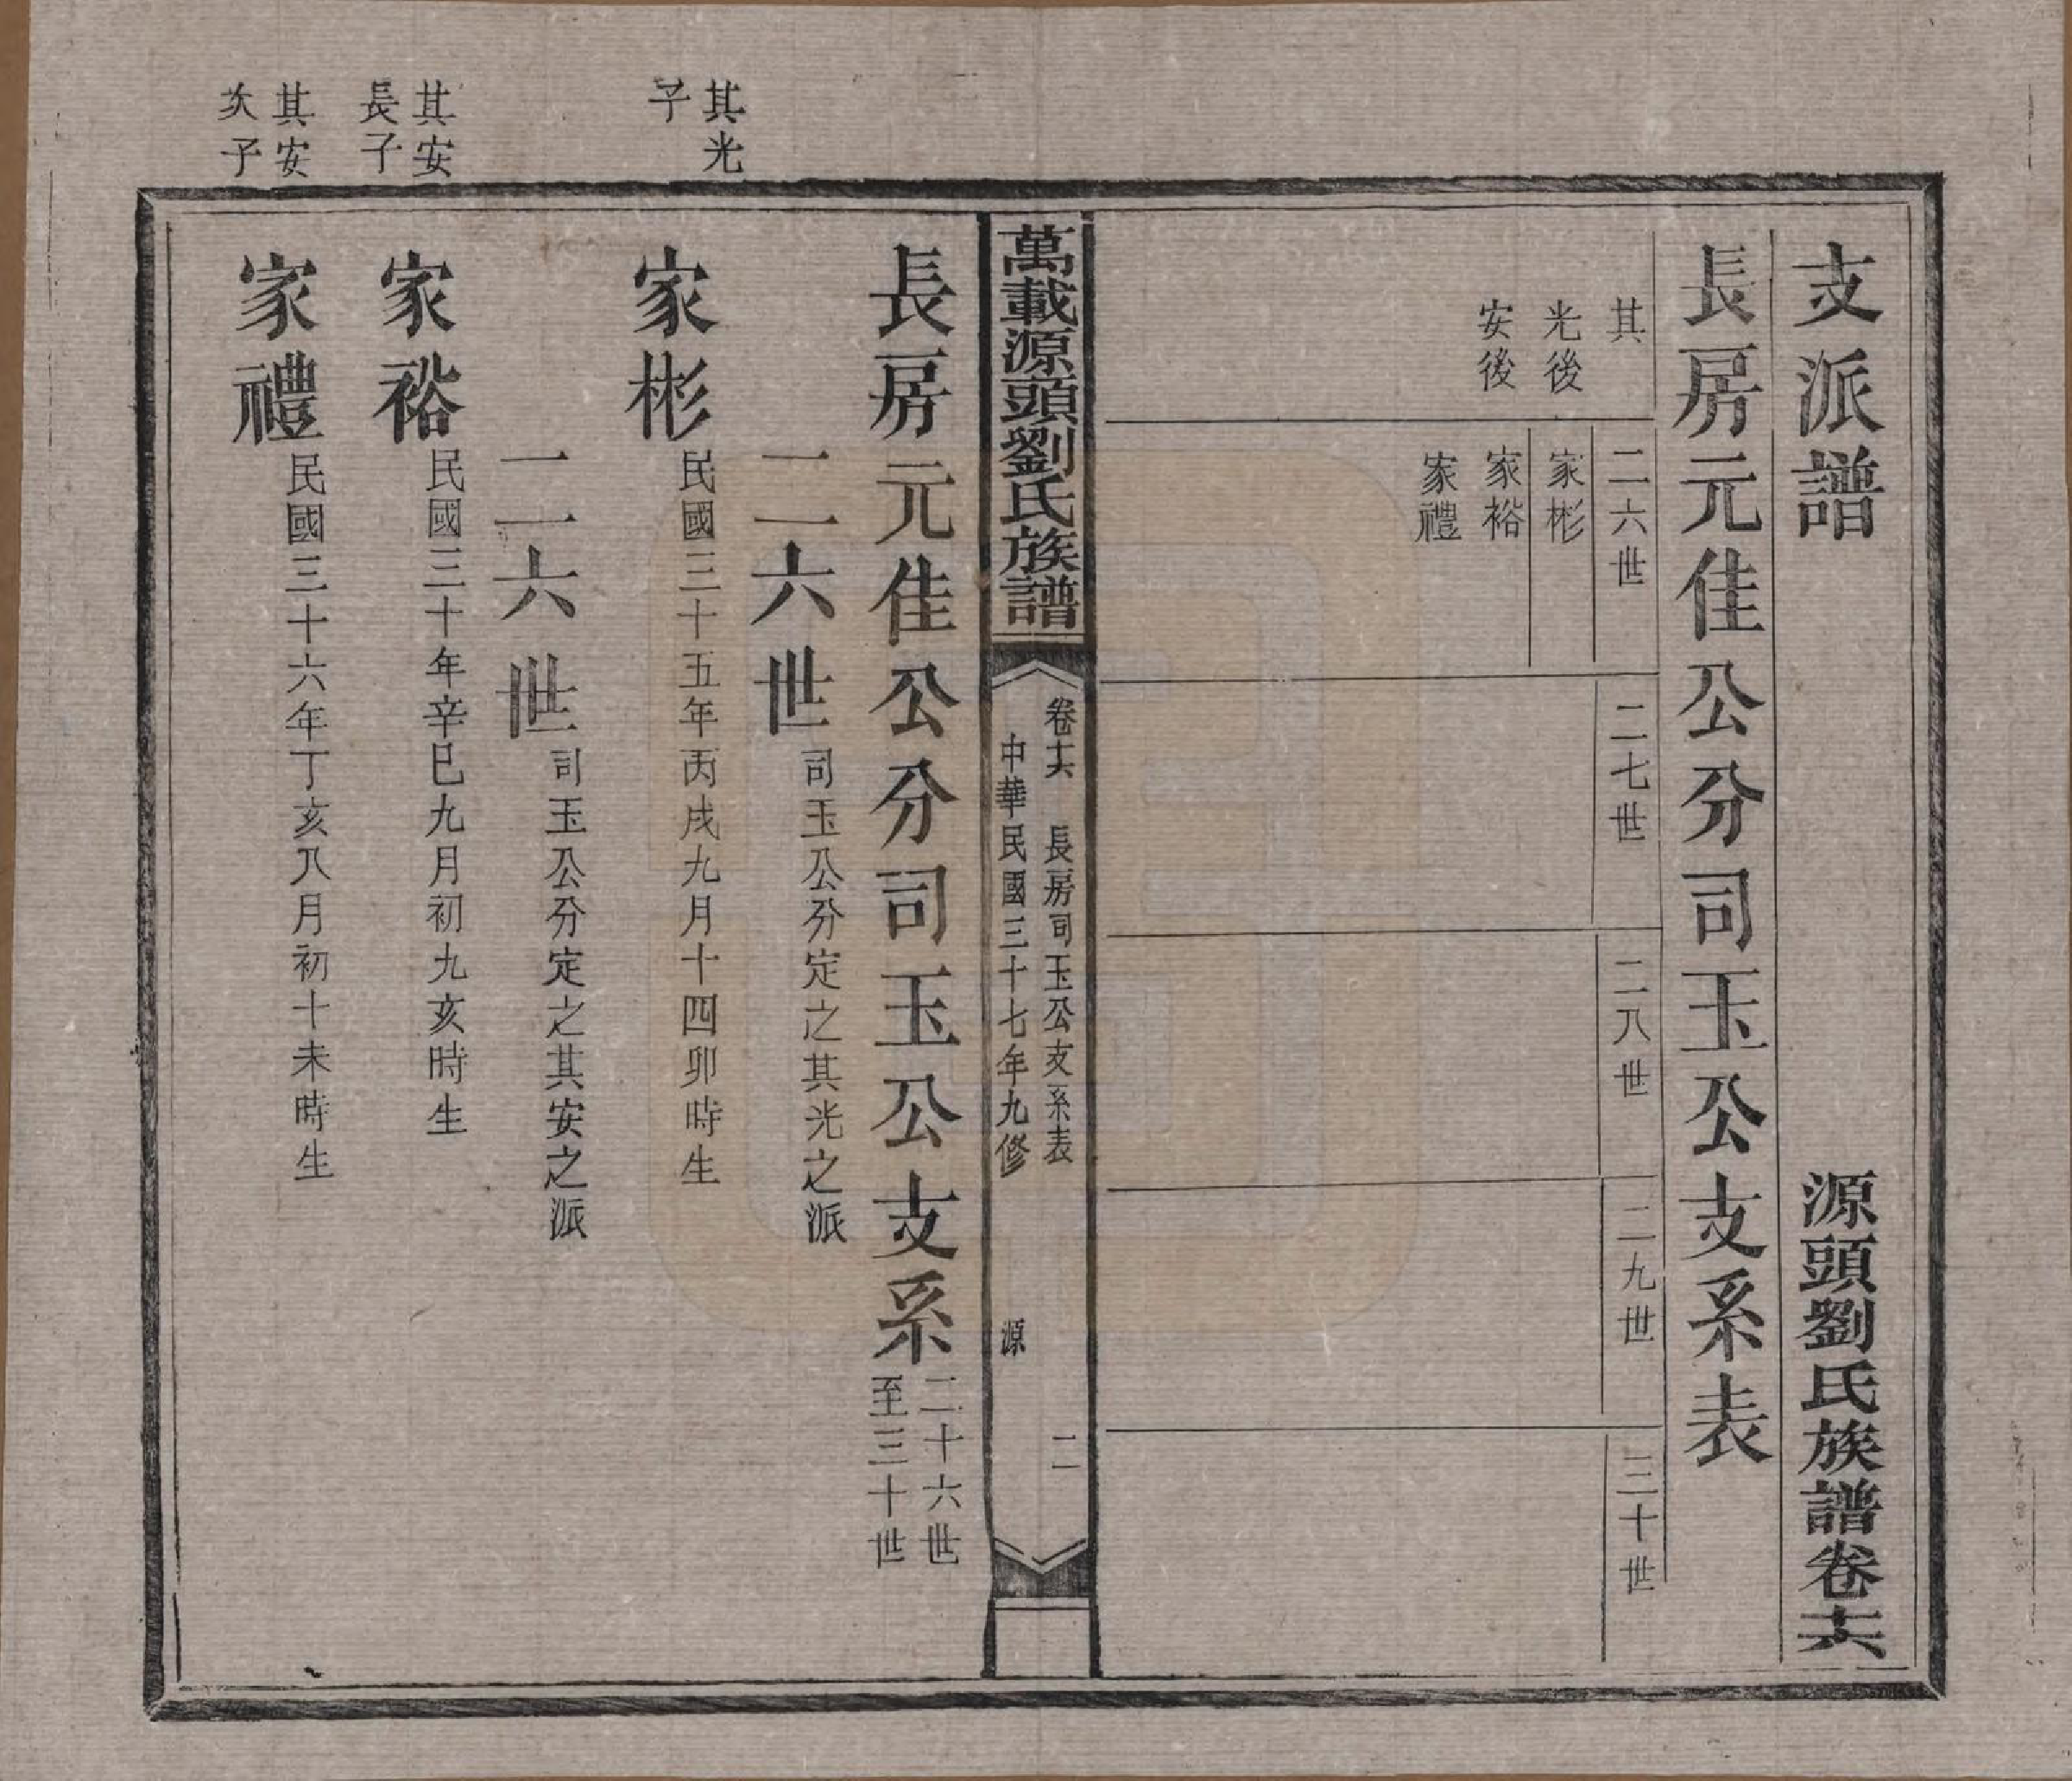 支派譜
源頭劉氏族譜卷十六
長房元佳公分司玉公支系表
其
光後
安後
二六世
家彬
家裕
家禮
二七世
二八世
二九世
三十世
萬載源頭劉氏族譜
卷十六 長房司玉公支系表 二
中華民國三十七年九修 源
長房元佳公分司玉公支系 二十六世
至三十世
二六世 司玉公分定之其光之派
其光
子
家彬 民國三十五年丙戌九月十四卯時生
二六世 司玉公分定之其安之派
其安
長子
家裕 民國三十年辛巳九月初九亥時生
其安
次子
家禮 民國三十六年丁亥八月初十未時生